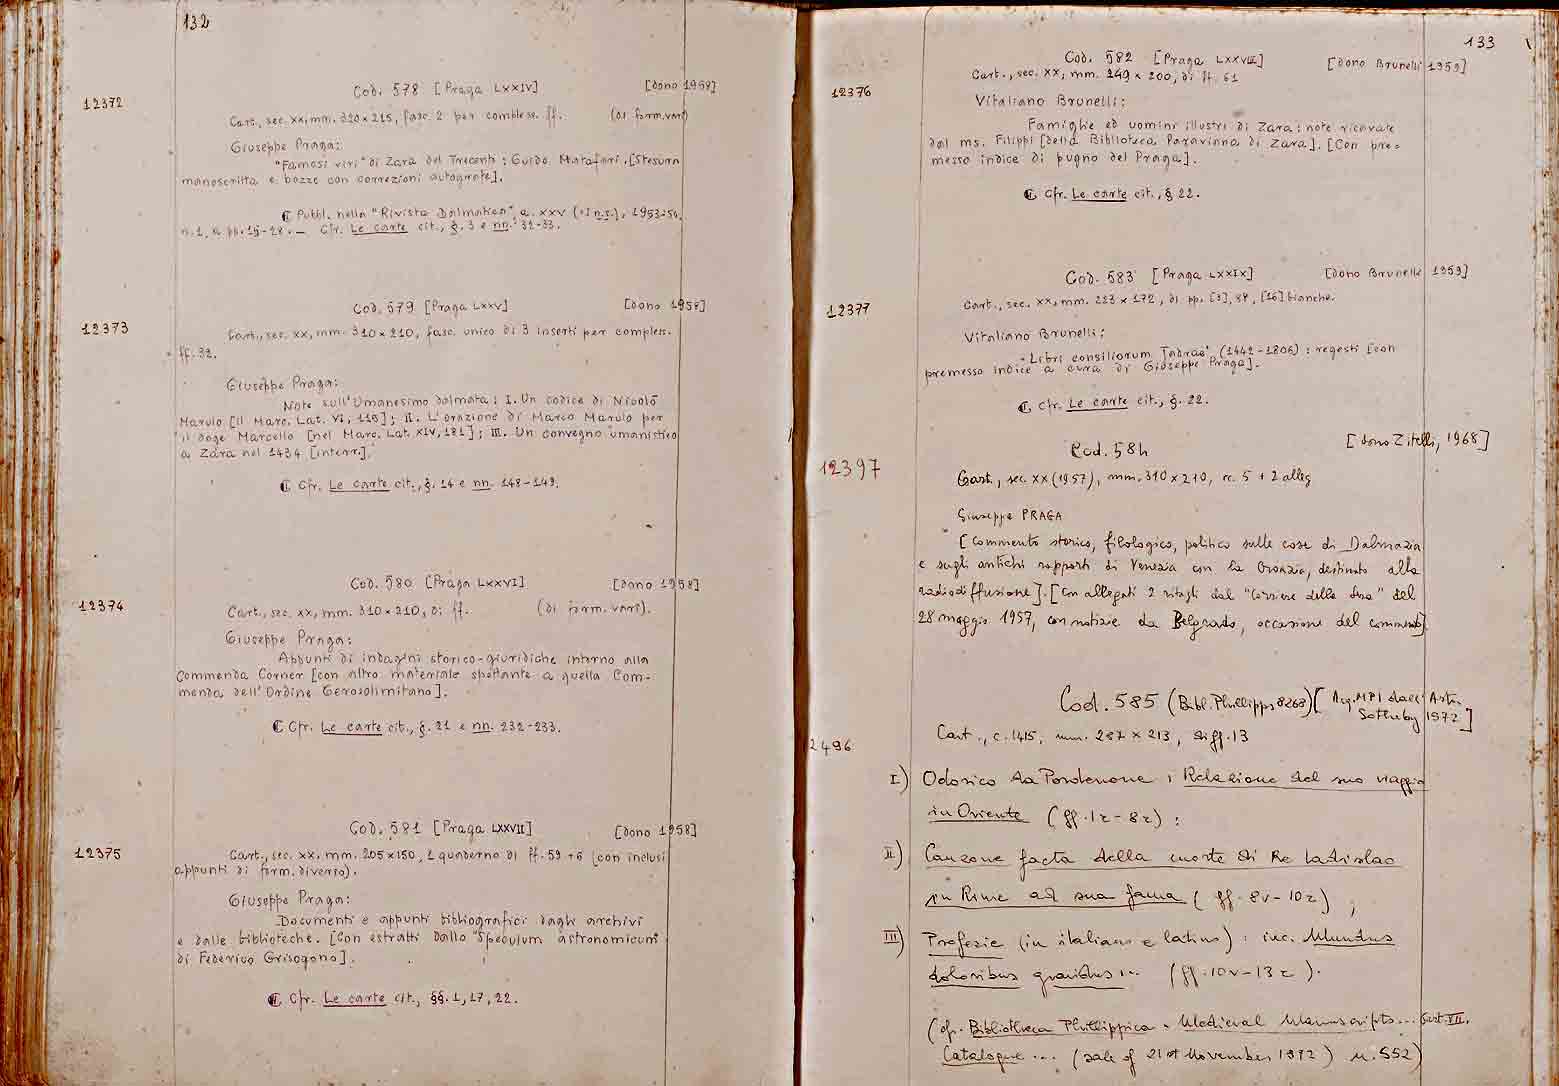 132
12372
Cod. 578 [Praga LXXIV] [dono 1958]
Cart., sec. XX, mm. 320 x 215, fasc. 2 per compless. ff. (di form. vari)
Giuseppe Praga:
"Famosi viri" di Zara del Trecento: Guido Matafari. [Stesura
manoscritta e bozze con correzioni autografe].
Pubbl. nella "Rivista Dalmatica", a. XXV (I n.s.), 1953-54,
n. 1, pp. 15-28. — Cfr. Le carte cit., §. 3 e nn. 32-33.
12373
Cod. 579 [Praga LXXV] [dono 1958]
Cart., sec. XX, mm. 310 x 210, fasc. unico di 3 inserti per compless.
ff. 32.
Giuseppe Praga:
Note sull'Umanesimo dalmata: I. Un codice di Nicolò
Marulo [il Marc. Lat. VI, 115]; II. L'orazione di Marco Marulo per
il doge Marcello [nel Marc. Lat. XIV, 181]; III. Un convegno umanistico
a Zara nel 1434 [interr.].
Cfr. Le carte cit., §. 14 e nn. 148-149.
12374
Cod. 580 [Praga LXXVI] [dono 1958]
Cart., sec. XX, mm. 310 x 210, di ff. (di form. vari).
Giuseppe Praga:
Appunti di indagini storico-giuridiche intorno alla
Commenda Corner [con altro materiale spettante a quella Com-
menda dell'Ordine Gerosolimitano].
Cfr. Le carte cit., §. 21 e nn. 232-233.
12375
Cod. 581 [Praga LXXVII] [dono 1958]
Cart., sec. XX, mm. 205 x 150, 1 quaderno di ff. 59 + 6 (con inclusi
appunti di form. diverso).
Giuseppe Praga:
Documenti e appunti bibliografici dagli archivi
e dalle biblioteche. [Con estratti dallo "Speculum astronomicum"
di Federico Grisogono].
Cfr. Le carte cit., §§. 1, 17, 22.
133
12376
Cod. 582 [Praga LXXVIII] [dono Brunelli 1959]
Cart., sec. XX, mm. 249 x 200, di ff. 61
Vitaliano Brunelli:
Famiglie ed uomini illustri di Zara: note ricavate
dal ms. Filippi [della Biblioteca Paravianna di Zara]. [Con pre=
messo indice di pugno del Praga].
Cfr. Le carte cit., § 22.
12377
Cod. 583 [Praga LXXIX] [dono Brunelli 1959]
Cart., sec. XX, mm. 223 x 172, di pp. [3], 88, [16] bianche.
Vitaliano Brunelli:
"Libri consiliorum Jadrae" (1442-1806): regesti [con
premesso indice a cura di Giuseppe Praga].
Cfr. Le carte cit., §. 22.
12397
Cod. 584 [dono Zitelli, 1968]
Cart., sec. XX (1957), mm. 310 x 210, cc. 5 + 2 alleg
Giuseppe PRAGA
[Commento storico, filologico, politico sulle cose di Dalmazia
e sugli antichi rapporti di Venezia con la Croazia, destinato alla
radiodiffusione]. [Con allegati 2 ritagli dal "Corriere della Sera" del
28 maggio 1957, con notizie da Belgrado, occasione del commento].
2496
Cod. 585 (Bibl. Phillipps 8268) [Acq. MPI dall'Asta
Sotheby 1972]
Cart., c. 1415, mm. 287 x 213, di ff. 13
I) Odorico da Pordenone: Relazione del suo viaggio
in Oriente (ff. 1r - 8r);
II) Canzone facta della morte di Re Ladislao
in Rime ad sua fama (ff. 8v - 10r);
III) Profezie (in italiano e latino): inc. Mundus
doloribus gravidus... (ff. 10v - 13r).
(cfr. Bibliotheca Phillippica. Medieval Manuscripts... part. VII.
Catalogue... (sale of 21st November 1972) n. 552)